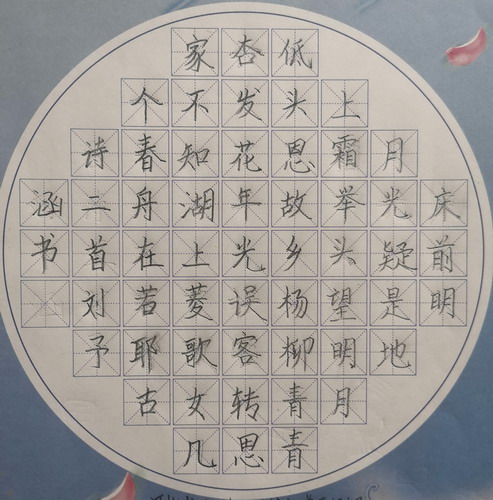 床前明
月光疑是地
上霜举头望明月
低头恩故乡杨柳青青
杏发花年光误客转思
家不知湖上菱歌女几
个春舟在若耶古
诗二首刘予
涵书